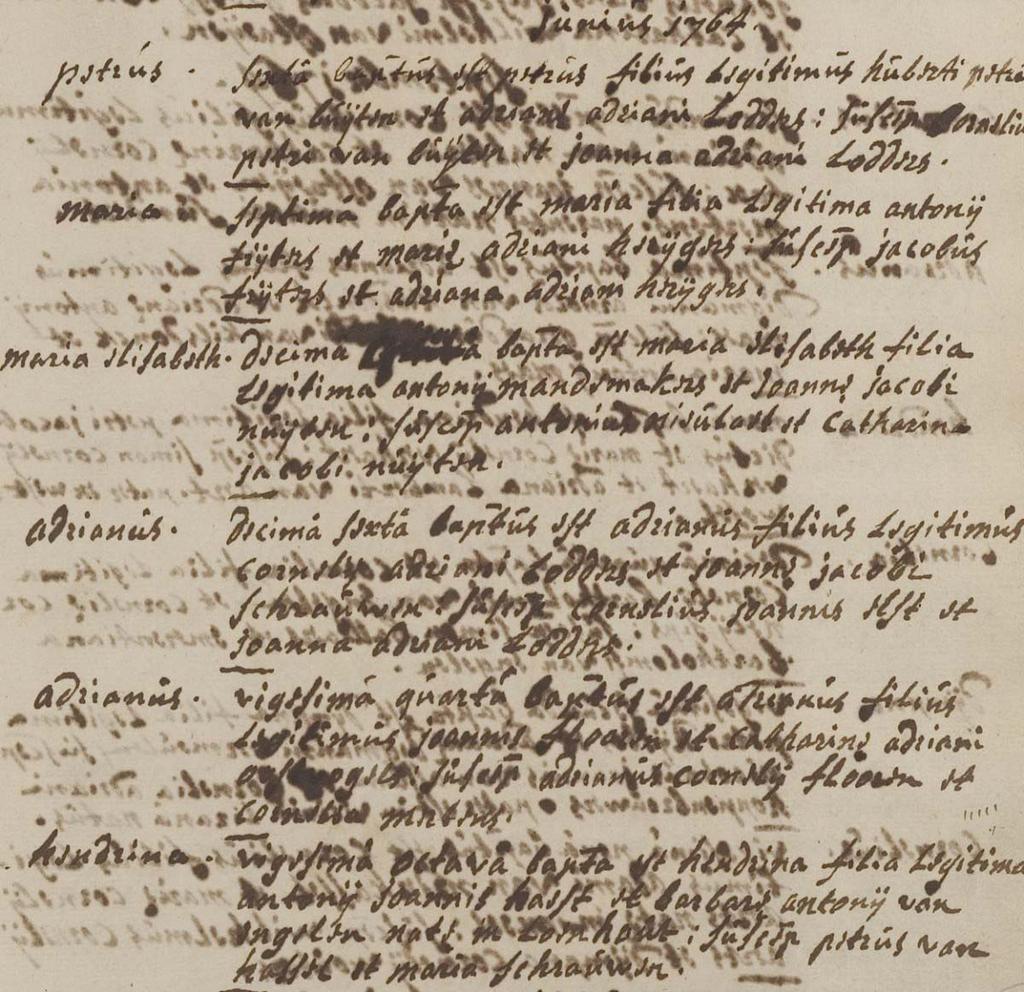 junius 1764.
petrus . sexta baptus est petrus filius legitimus huberti petri
van buijten et adriane adriani Lodders: suscep Cornelius
petri van buijten et joanna adriani Lodders.
maria septima bapta est maria filia Legitima antonij
et marie adriani heijgers: suscep jacobus
et adriana adriani heijgers.
maria elisabeth. decima bapta est maria elisabeth filia
Legitima antonij mandemakers et joanne jacobi
nuijten: suscep antonius et Catharina
jacobi nuijten.
adrianus. decima sexta baptus est adrianus filius Legitimus
cornelij adriani Lodders et joanne jacobi
schrauwen: suscep Cornelius joannis elst et
joanna adriani Lodders.
adrianus. vigesima quarta baptus est adrianus filius
Legitimus joannis flooren et Catharine adriani
suscep adrianus cornelij flooren et
cornelia
hendrina. vigesima octava bapta est hendrina filia Legitima
antonij joannis hasst et barbare antonij van
engelen nate in Loenhout: suscep petrus van
hassel et maria schrauwen.